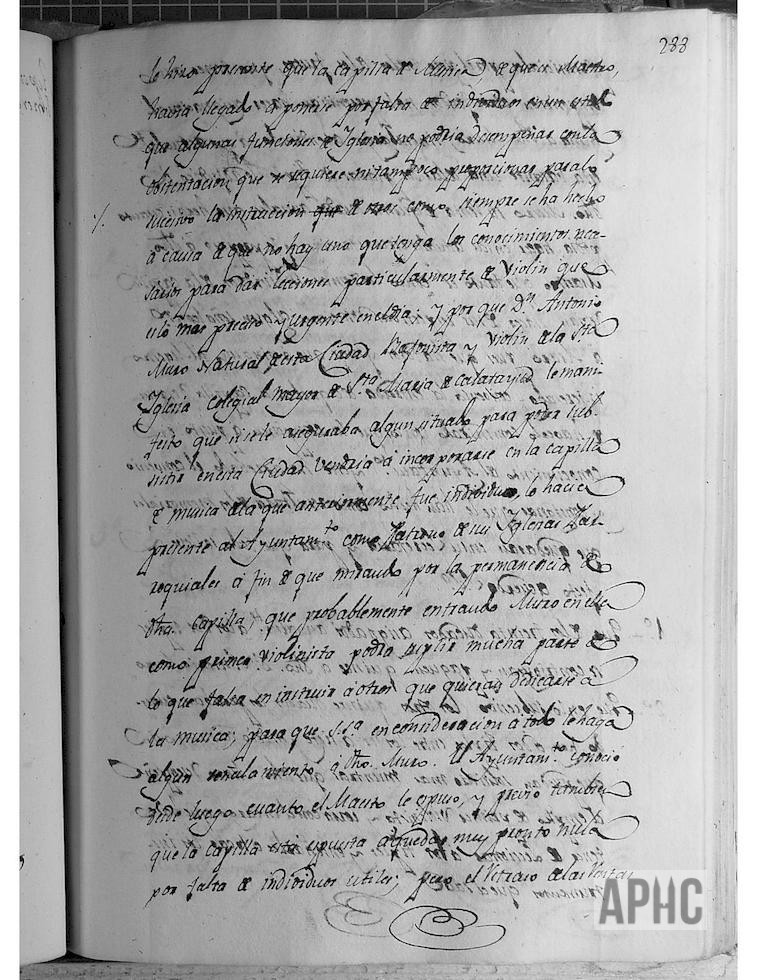 288
le hizo presente que la capilla de Musica de que es Maestro,
havia llegado a ponerse por falta de individuos en un estado
que algunas funciones de Yglesia no podria desempeñar con la
obstentacion que se requiere ni tampoco proporcionar para lo
succesivo la instruccion que de otros como siempre se ha hecho
a causa de que no hay uno que tenga los conocimientos nece-
sarios para dar lecciones particularmente de violin que
es lo mas preciso y urgente en el dia; Y por que Dn. Antonio
Muro Natural de esta Ciudad Bajonista y violin de la Sta
Yglesia Colegial mayor de Sta Maria de Calatayud le mani-
festó que si se le aseguraba algun situado para poder sub-
sistir en esta Ciudad vendria á incorporarse en la capilla
de musica de la que anteriormente fue individuo, lo hacia
presente al Ayuntamto como Patrono de sus Yglesias Par-
roquiales á fin de que mirando por la permanencia de
dha. capilla que probablemente entrando Muro en ella
como primer violinista podra suplir mucha parte de
lo que falta en instruir á otros que quieran dedicarse á
la musica; para que S.Sa en consideracion á todo le haga
algun señalamiento a dho. Muro. El Ayuntamto. conoció
desde luego cuanto el Maestro le espuso, y previó tambien
que la capilla está espuesta a quedar muy pronto nula
por falta de individuos utiles; pero el Retraso de las Rentas
APHC